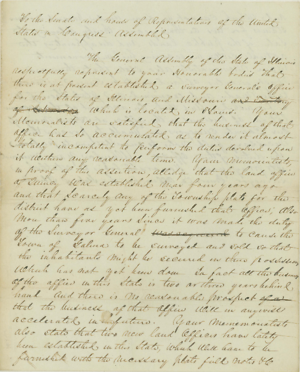 To the Senate and House of Representatives of the United
States in Congress Assembled
The General Assembly of the State of Illinois
respectfully represent to your Honorable bodies That
there is at present established a Surveyor General's office
for the States of Illinois and Missouri
which is located in St Louis. Your
Memorialists are satisfied that the business of that
office has so accumulated, as to render it almost
totally incompetent to perform the duties devolved upon
it within any reasonable time. Your memorialists,
in proof of the assertion, allege that the land office
at Quincy was established more than four years ago
and that scarcely any of the Township plats for the
district have as yet been furnished that office, also
More than four years since it was made the duty
of the Surveyor General to cause the
Town of Galena to be surveyed and sold so that
the inhabitants might be secured in their possessions
which has not yet been done. In fact all the business
of the office in this State is two or three years behind
hand and there is no reasonable prospect
that the business of that office will in anywise
accelerated in future. Your Memorialists
also state that two new land offices have lately
been established in the State, which will have to be
furnished with the necessary plats field notes &c